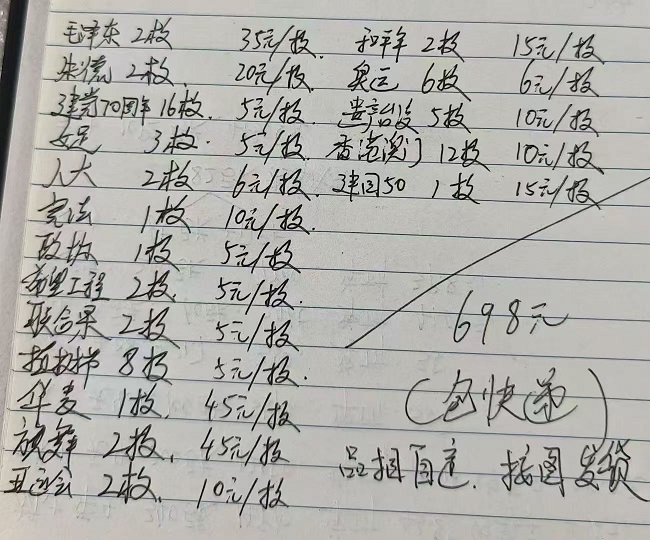 毛泽东 2枚 35元/枚. 和平年 2枚 15元/枚
朱德 2枚. 20元/枚. 奥运 6枚 6元/枚
建党70周年 16枚. 5元/枚. 5枚 10元/枚
女足 3枚. 5元/枚. 香港澳门 12枚 10元/枚
人大 2枚 6元/枚. 建国50 1枚 15元/枚
宪法 1枚 10元/枚.
政协 1枚 5元/枚
希望工程 2枚. 5元/枚.
联合果 2枚 5元/枚
植树 8枚 5元/枚.
华麦 1枚. 45元/枚
敖舞 2枚. 45元/枚
亚运会 2枚. 10元/枚
698元
(包快递)
品相自定. 按图发货